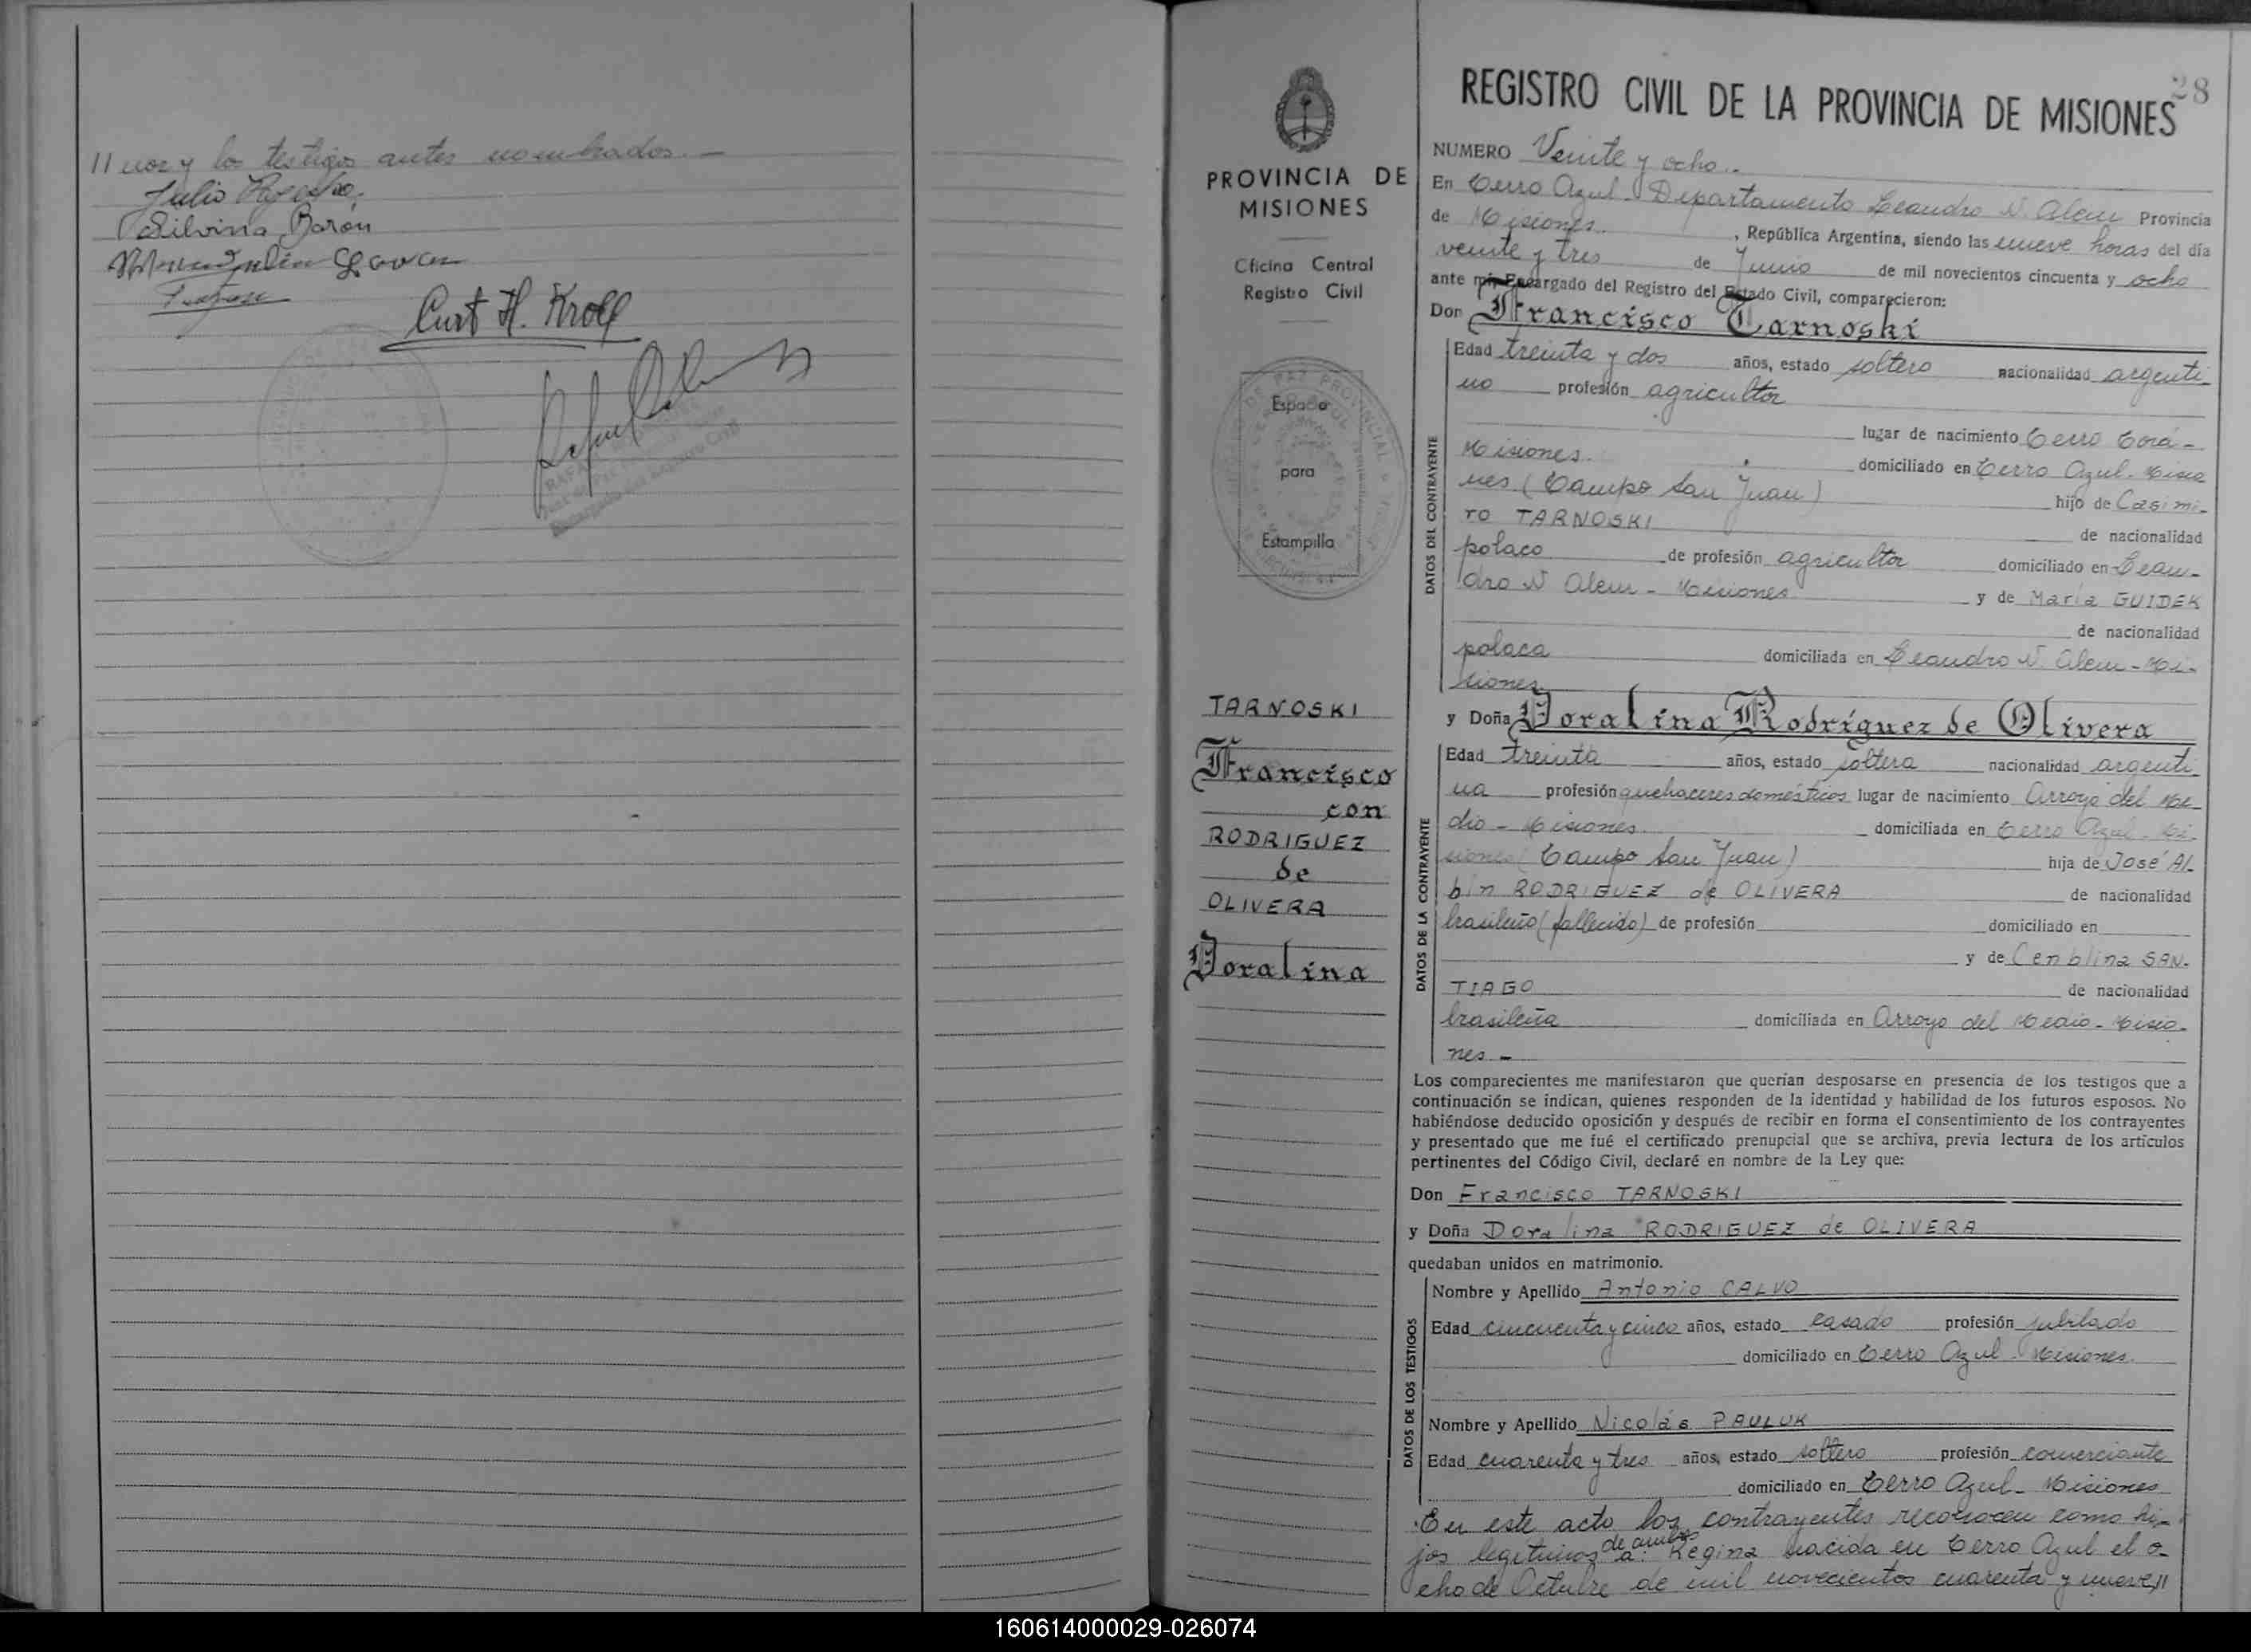 // nor y los testigos antes nombrados.—
Julio
Silvina Barón
Curt H. Kroll
28
REGISTRO CIVIL DE LA PROVINCIA DE MISIONES
PROVINCIA DE
MISIONES
Oficina Central
Registro Civil
Espacio
para
Estampilla
TARNOSKI
Francisco
con
RODRIGUEZ
de
OLIVERA
Doralina
NUMERO Veinte y ocho.-
En Cerro Azul Departamento Leandro N. Alem Provincia
de Misiones. , República Argentina, siendo las nueve horas del día
veinte y tres de Junio de mil novecientos cincuenta y ocho
ante mi, Encargado del Registro del Estado Civil, comparecieron:
Don Francisco Tarnoski
DATOS DEL CONTRAYENTE
Edad treinta y dos años, estado soltero nacionalidad argenti-
no profesión agricultor
lugar de nacimiento Cerro Corá -
Misiones. domiciliado en Cerro Azul - Misio
nes (Campo San Juan) hijo de Casimi-
ro TARNOSKI de nacionalidad
polaco de profesión agricultor domiciliado en Lean-
dro N Alem - Misiones y de María GUIDEK
de nacionalidad
polaca domiciliada en Leandro N. Alem - Mi-
siones.
y Doña Doralina Rodríguez de Olivera
DATOS DE LA CONTRAYENTE
Edad treinta años, estado soltera nacionalidad argenti
na profesión quehaceres domésticos lugar de nacimiento Arroyo del Me-
dio - Misiones. domiciliada en Cerro Azul - Mi-
siones (Campo San Juan) hija de José Al-
bin RODRIGUEZ de OLIVERA de nacionalidad
brasileño (fallecido) de profesión domiciliado en
y de Cenblina SAN-
TIAGO de nacionalidad
brasileña domiciliada en Arroyo del Medio - Misio-
nes.-
Los comparecientes me manifestaron que querían desposarse en presencia de los testigos que a
continuación se indican, quienes responden de la identidad y habilidad de los futuros esposos. No
habiéndose deducido oposición y después de recibir en forma el consentimiento de los contrayentes
y presentado que me fué el certificado prenupcial que se archiva, previa lectura de los artículos
pertinentes del Código Civil, declaré en nombre de la Ley que:
Don Francisco TARNOSKI
y Doña Doralina RODRIGUEZ de OLIVERA
quedaban unidos en matrimonio.
DATOS DE LOS TESTIGOS
Nombre y Apellido Antonio CALVO
Edad cincuenta y cinco años, estado casado profesión jubilado
domiciliado en Cerro Azul - Misiones.
Nombre y Apellido Nicolás PAULUK
Edad cuarenta y tres años, estado soltero profesión comerciante
domiciliado en Cerro Azul - Misiones
En este acto los contrayentes reconocen como hi-
jos legítimos de ambos a: Regina nacida en Cerro Azul el o-
cho de Octubre de mil novecientos cuarenta y nueve //
160614000029-026074